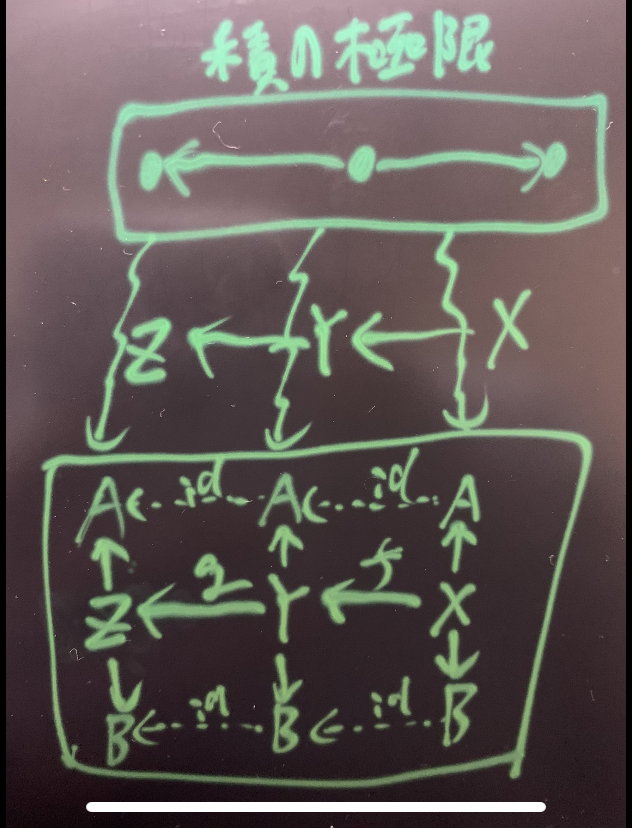 積の極限
Z ← Y ← X
A ← id A ← id A
Z ← g Y ← f X
B ← id B ← id B